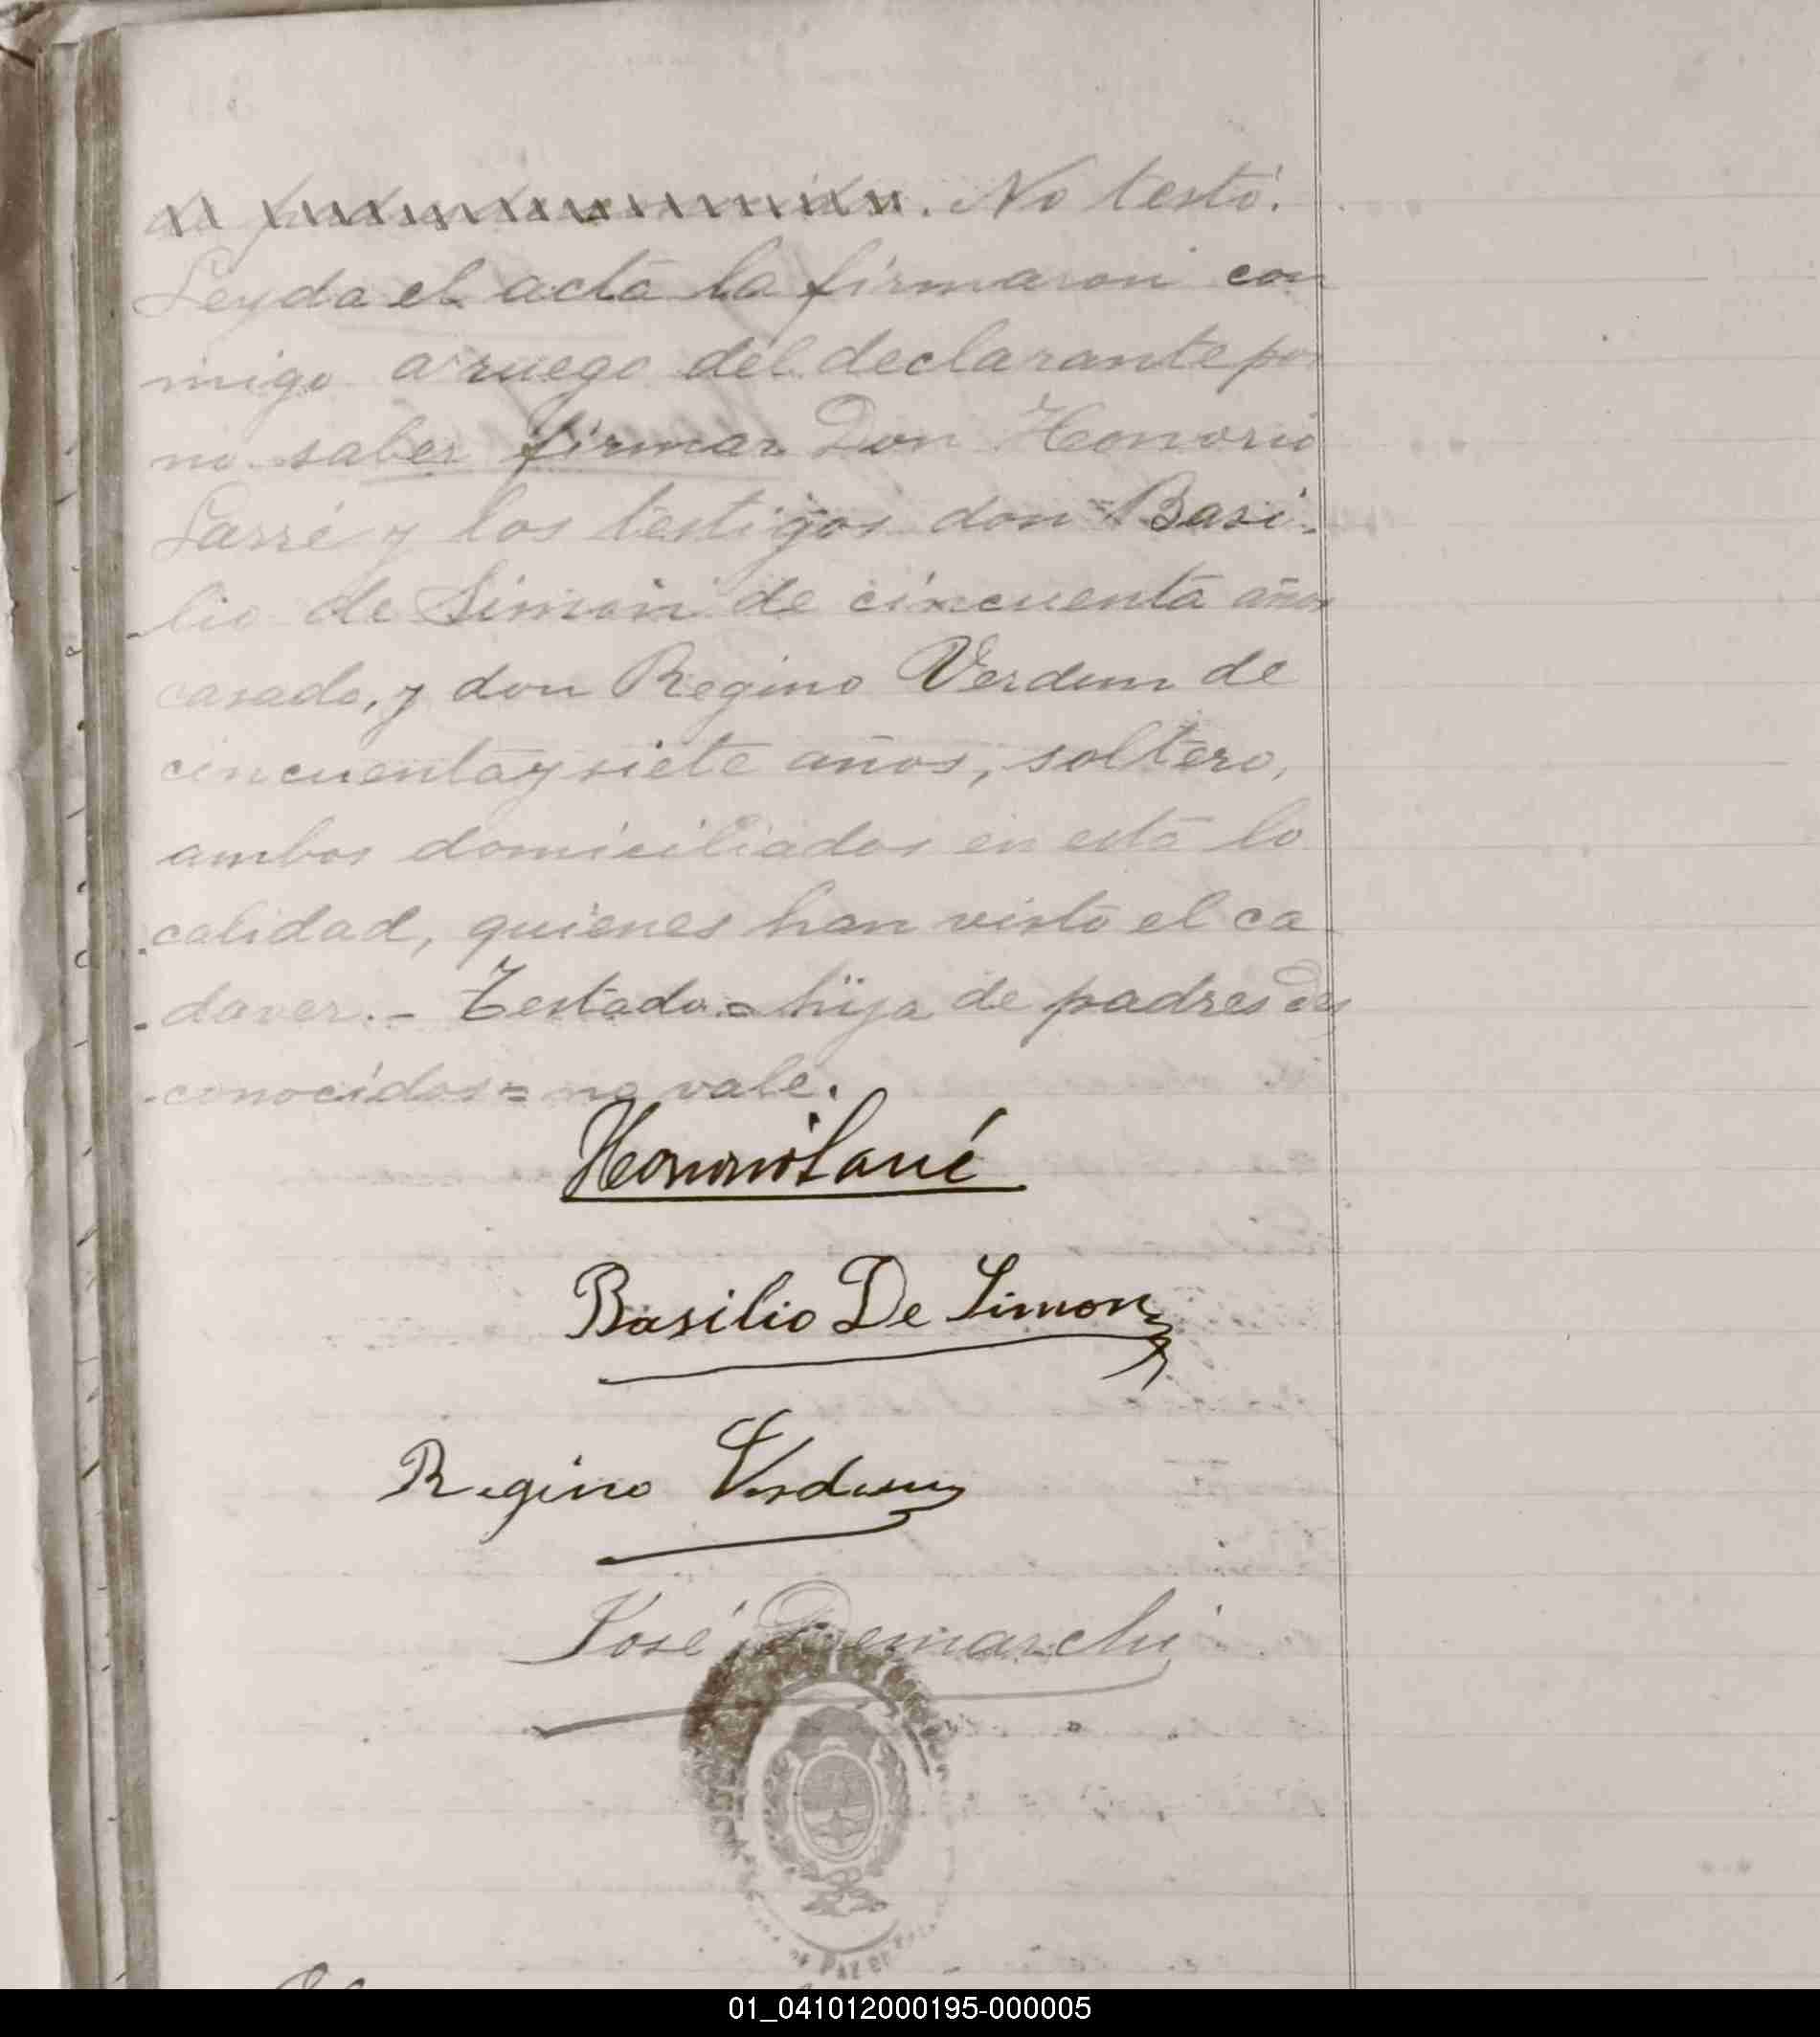 No testó.
Leyda el acta la firmaron con
migo a ruego del declarante por
no saber firmar Don Honorio
Larré y los testigos don Basi-
lio de Simon de cincuenta años
casado, y don Regino Verdum de
cincuenta y siete años, soltero,
ambos domiciliados en esta lo
calidad, quienes han visto el ca
daver.- Testado = hija de padres des
conocidos = no vale.
Honorio Larré
Basilio De Simon
Regino Verdum
José Demarchi
DE PAZ DE
01_041012000195-000005